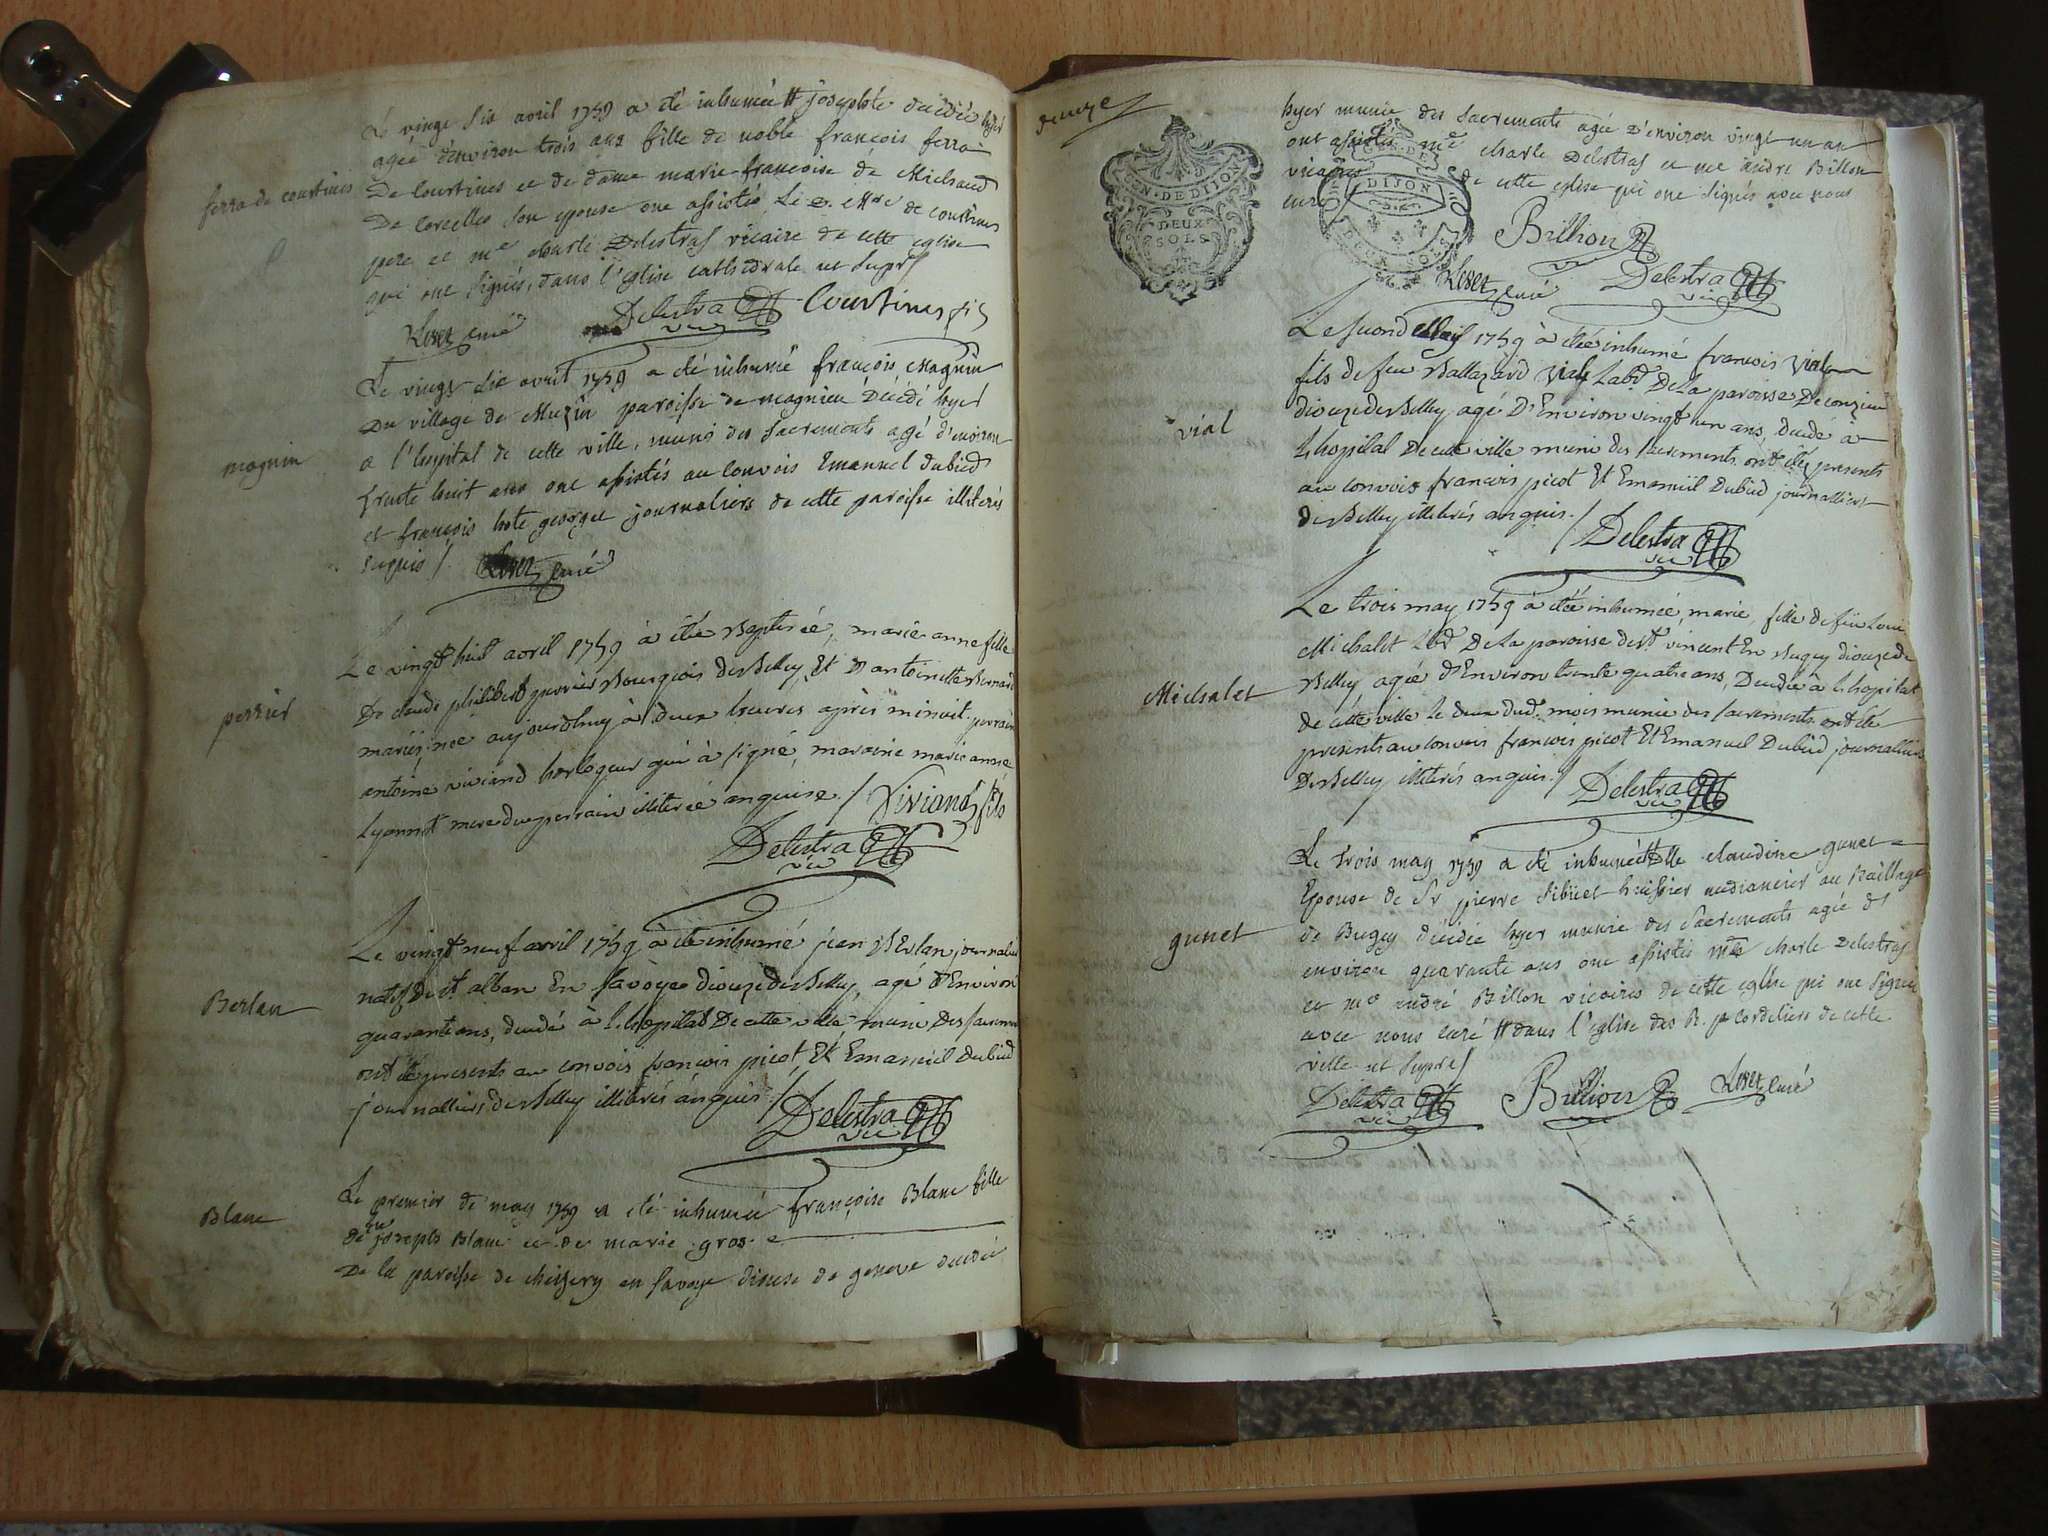 Le vingt six avril 1759 a été inhumée # josephte décédée hyer
agée denviron trois ans fille de noble françois ferra
De Courtines et de dame marie françoise de Michaud
ferra de courtines
De Corcelles son epouse ont assistés, Le d. Mr de courtines
pere et me charle Delestras vicaire de cette eglise
qui ont signés, # dans l'eglise cathedrale ut supra
curé Delestra vic Courtines
Le vingt six avril 1759 a été inhumé françois Magnin
Du village de Muzin paroisse de magnieu Décédé hyer
magnin
a l'hopital de cette ville, munis des sacrements agé d'environ
trente huit ans ont assistés au convois Emanuel dubied
et françois hote george journaliers de cette paroisse illiterés
enquis /. curé
Le vingt huit avril 1759 à été Baptisée, marie anne fille
De claude philibert perrier Bourgeois de Belley, Et D antoinette Bernard
perrier
mariés, née aujourdhuy à deux heures après minuit, parrain
antoine viviand horlogeur qui à signé, maraine marie anne
Lyonnet mere du perrain illiterée anquise. / Viviand fils
Delestra vic
Le vingt neuf avril 1759 à été inhumé jean Berlan journalier
natif de st alban En savoye diouze de Belley, agé d'Environ
Berlan
quarante ans, decedé à L'hopital De cette ville munie Des sacrements
ont été presents au convois françois picot Et Emanuel Dubied
journalliers de Belley illiterés anquis /
Delestra vic
Le premier de may 1759 a été inhumée françoise Blanc fille
Blanc
de feu joseph Blanc et de marie gros
De la paroisse de cheizery en savoye diocese de geneve decedée
douze
GEN · DE DIJON
DEUX
SOLS
hyer munie des sacrements agée d'environ vingt un an
ont assistés me charle Delestras et me andre Billion
vicaires de cette eglise qui ont signés avec nous
curé
DIJON
DEUX SOLS
Billion
curé Delestra vic
Le second May 1759 à étée inhumé francois Vial
fils de feu Baltazard Vial Labr De La paroisse De conzieu
diouze de Belley, agé D'Environ vingt un ans, decedé à
vial
L'hopital De cette ville munie des sacrements ont étés presents
au convois francois picot Et Emanuil Dubied journalliers
de Belley illiterés anquis. /
Delestra vic
Le trois may 1759 à étée inhumée, marie, fille de feu Louis
Michalet Lbr De La paroisse de st vincent En Bugey diouze de
Michalet
Belley, agée d'Environ trente quatre ans, Decedée à L'hopital
de cette ville Le deux dud. mois munie des sacrements ont été
presents au convois francois picot Et Emanuel Dubied journalliers
De Belley illiterés anquis. /
Delestra vic
Le trois may 1759 a été inhumée # Dlle claudine gunet
Epouse de Sr pierre Sibuet huissier audiancier au Bailliage
gunet
de Bugey décédée hyer munie des sacrements agée d
environ quarante ans ont assistés me charle Delestras
et me andré Billion vicaires de cette eglise qui ont signés
avec nous curé # dans l'eglise des R. p. Cordeliers de cette
ville ut supra /
Delestra vic Billion curé